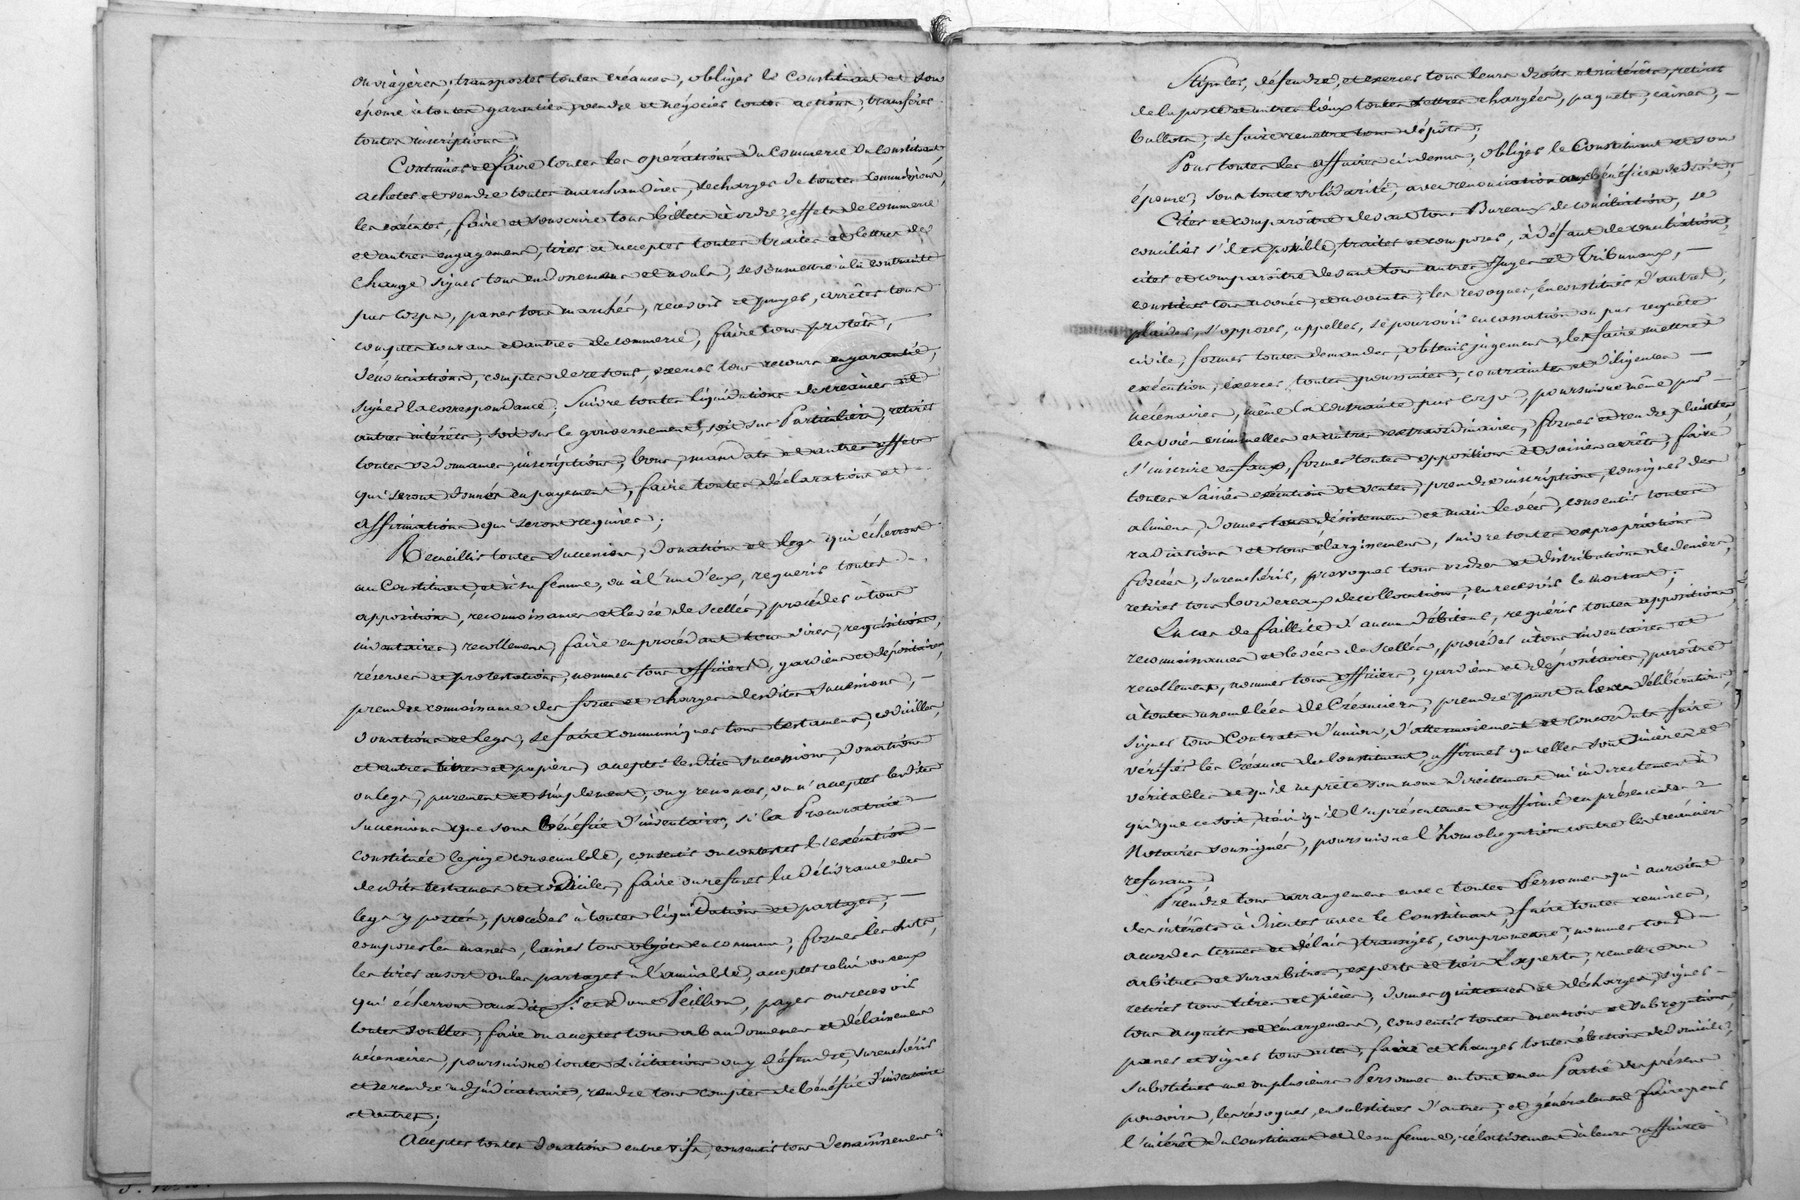 ou viagères, transportes toutes créances, obliges le Constituant et son
épouse à toutes garanties, vendre et négocies toutes actions, transféres
toutes inscriptions;
Continues et faire toutes les opérations du Commerce du Constituant,
achetes et vendre toutes marchandises, se charges de toutes commissions,
les exécutes, faire et souscrire tous billets à ordre, effets de commerce
et autres engagemens, tires et acceptes toutes traites et lettres de
change, signes tous endossemens et avals, se soumettre à la contrainte
par corps, passes tous marchés, recevois et payes, arrêtes tous
comptes courans et autres de commerce, faire tous protêts,
dénonciations, comptes de retours, exerces tous recours en garantie,
signes la correspondance, Suivre toutes liquidations de créances et
autres intérêts, soit sur le gouvernement, soit sur Particuliers, retires
toutes ordonnances, inscriptions, bons, mandats et autres effets
qui seront donnés en payement, faire toutes déclarations et
affirmations qui seront requises;
Recueillis toutes successions, donations et legs qui écherront
au Constituant, et à sa femme, ou à l'un d'eux, requeris toutes
appositions, reconnaissances et levée de scellés, procédes à tous
inventaires, recollemens, faire en procédant tous dires, requisitions,
réserves et protestations, nommes tous officiers, gardiens et dépositaires,
prendre connaissance des forces et charges desdites successions,
donations et legs, se faire communiques tous testamens, codicilles,
et autres titres et papiers, acceptes lesdites successions, donations
ou legs, purement et simplement, ou y renonces, ou n'acceptes lesdites
successions que sous bénéfice d'inventaire, si la Procuratrice
constituée le juge convenable, consentis ou contestes l'exécution
desdits testamens et codiciles, faire ou refuses la délivrance des
legs y portés, procédes à toutes liquidations et partages,
composes les masses, laisses tous objets en commun, formes les lots,
les tires au sort ou les partages à l'amiable, acceptes celui ou ceux
qui écherront auxdits Sr. et dame Peillon, payes ou recevois
toutes soultes, faire ou acceptes tous abandonnemens et délaissemens
nécessaires, poursuivre toutes licitations ou y défendre, surenchéris
et se rendre adjudicataire, rendre tous comptes de bénéfice d'inventaire
et autres;
Acceptes toutes donations entre vifs, consentis tous dessaisissemens
Stipules, défendre, et exerces tous leurs droits et intérêts, retires
de la poste et autres lieux toutes lettres chargées, paquets, caisses,
ballots, se faire remettre tous dépôts;
Pour toutes les affaires ci-dessus, obliges le Constituant et son
épouse, sous toute solidarité, avec renonciation aux bénéfices de droit;
Cites et comparoître devant tous Bureaux de conciliation, se
concilies s'il est possible, traites et composes, à défaut de conciliation,
cites et comparoître devant tous autres Juges et Tribunaux,
constitues tous avoués et avocats, les revoques, en constitues d'autres,
plaides, s'opposes, appelles, se pourvois en cassation ou par requête
civile, formes toutes demandes, obtenis jugemens, les faire mettre à
exécution, exerces toutes poursuites, contraintes et diligences
nécessaires, même la contrainte par corps, poursuivre même par
les voies criminelles et autres extraordinaires, formes et rendre plaintes,
s'inscrire en faux, formes toutes oppositions et saisies arrêts, faire
toutes saisies exécutions et ventes, prendre inscriptions, consignes des
alimens, donnes tous désistemens et main levées, consentis toutes
radiations et tous élargissemens, suivre toutes expropriations
forcées, surenchéris, provoques tous ordres et distributions de deniers,
retires tous bordereaux de collocations, en recevois le montant;
En cas de faillite d'aucuns débiteurs, requéris toutes appositions,
reconnoissances et levées de scellés, procédes à tous inventaires et
recollemens, nommes tous officiers, gardiens et dépositaires, paroître
à toutes assemblées de Créanciers, prendre part à leurs délibérations,
signes tous Contrats d'union, d'attermoiement et concordats, faire
vérifier les Créances du Constituant, affirmes qu'elles sont sincères et
véritables et qu'il ne prête son nom directement ni indirectement à
qui que ce soit, ainsi qu'il l'a présentement affirmé en présence des
Notaires soussignés, poursuivre l'homologation contre les créanciers
refusans;
Prendre tous arrangemens avec toutes Personnes qui auroient
des intérêts à discutes avec le Constituant, faire toutes remises,
accordes termes et délais, transiges, compromettre, nommes tous
arbitres et surarbitres, experts et tiers Experts, remettre ou
retires tous titres et pièces, donnes quittances et décharges, signes
tous acquits et émargemens, consentis toutes mentions et subrogations,
passes et signes tous actes, faire et changes toutes élections de domicile,
substitues une ou plusieurs Personnes en tout ou en Partie des présens
pouvoirs, les révoques, en substitues d'autres, et généralement faire pour
l'intérêt du Constituant et de sa femme, relativement à leurs affaires